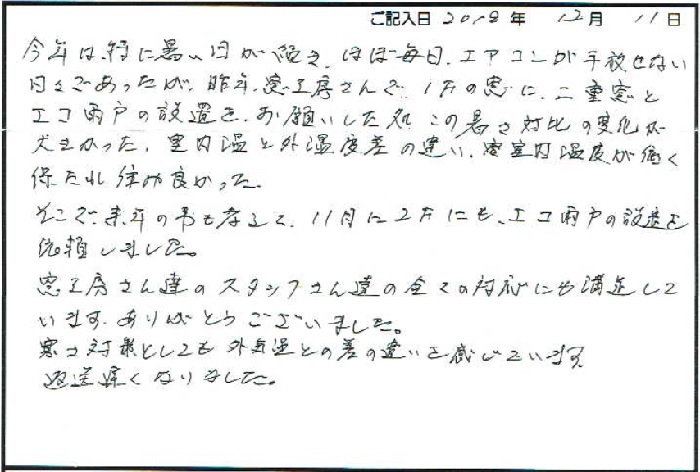 ご記入日 2018年 12月 11日
今年は、特に暑い日が続き、ほぼ毎日、エアコンが手放せない
日々であったが、昨年、窓工房さんで、1Fの窓に、二重窓と
エコ雨戸の設置を、お願いした処、この暑さ対比の変化が
大きかった。室内温と外温度差の違い、室内温度が低く
保たれ 良かった。
そこで、来年の事も考えて、11月に2Fにも、エコ雨戸の設置を
依頼しました。
窓工房さん達のスタッフさん達の全ての対応にも満足して
います。ありがとうございました。
寒さ対策としても 外気温との差の違いを感じています。
返送遅くなりました。